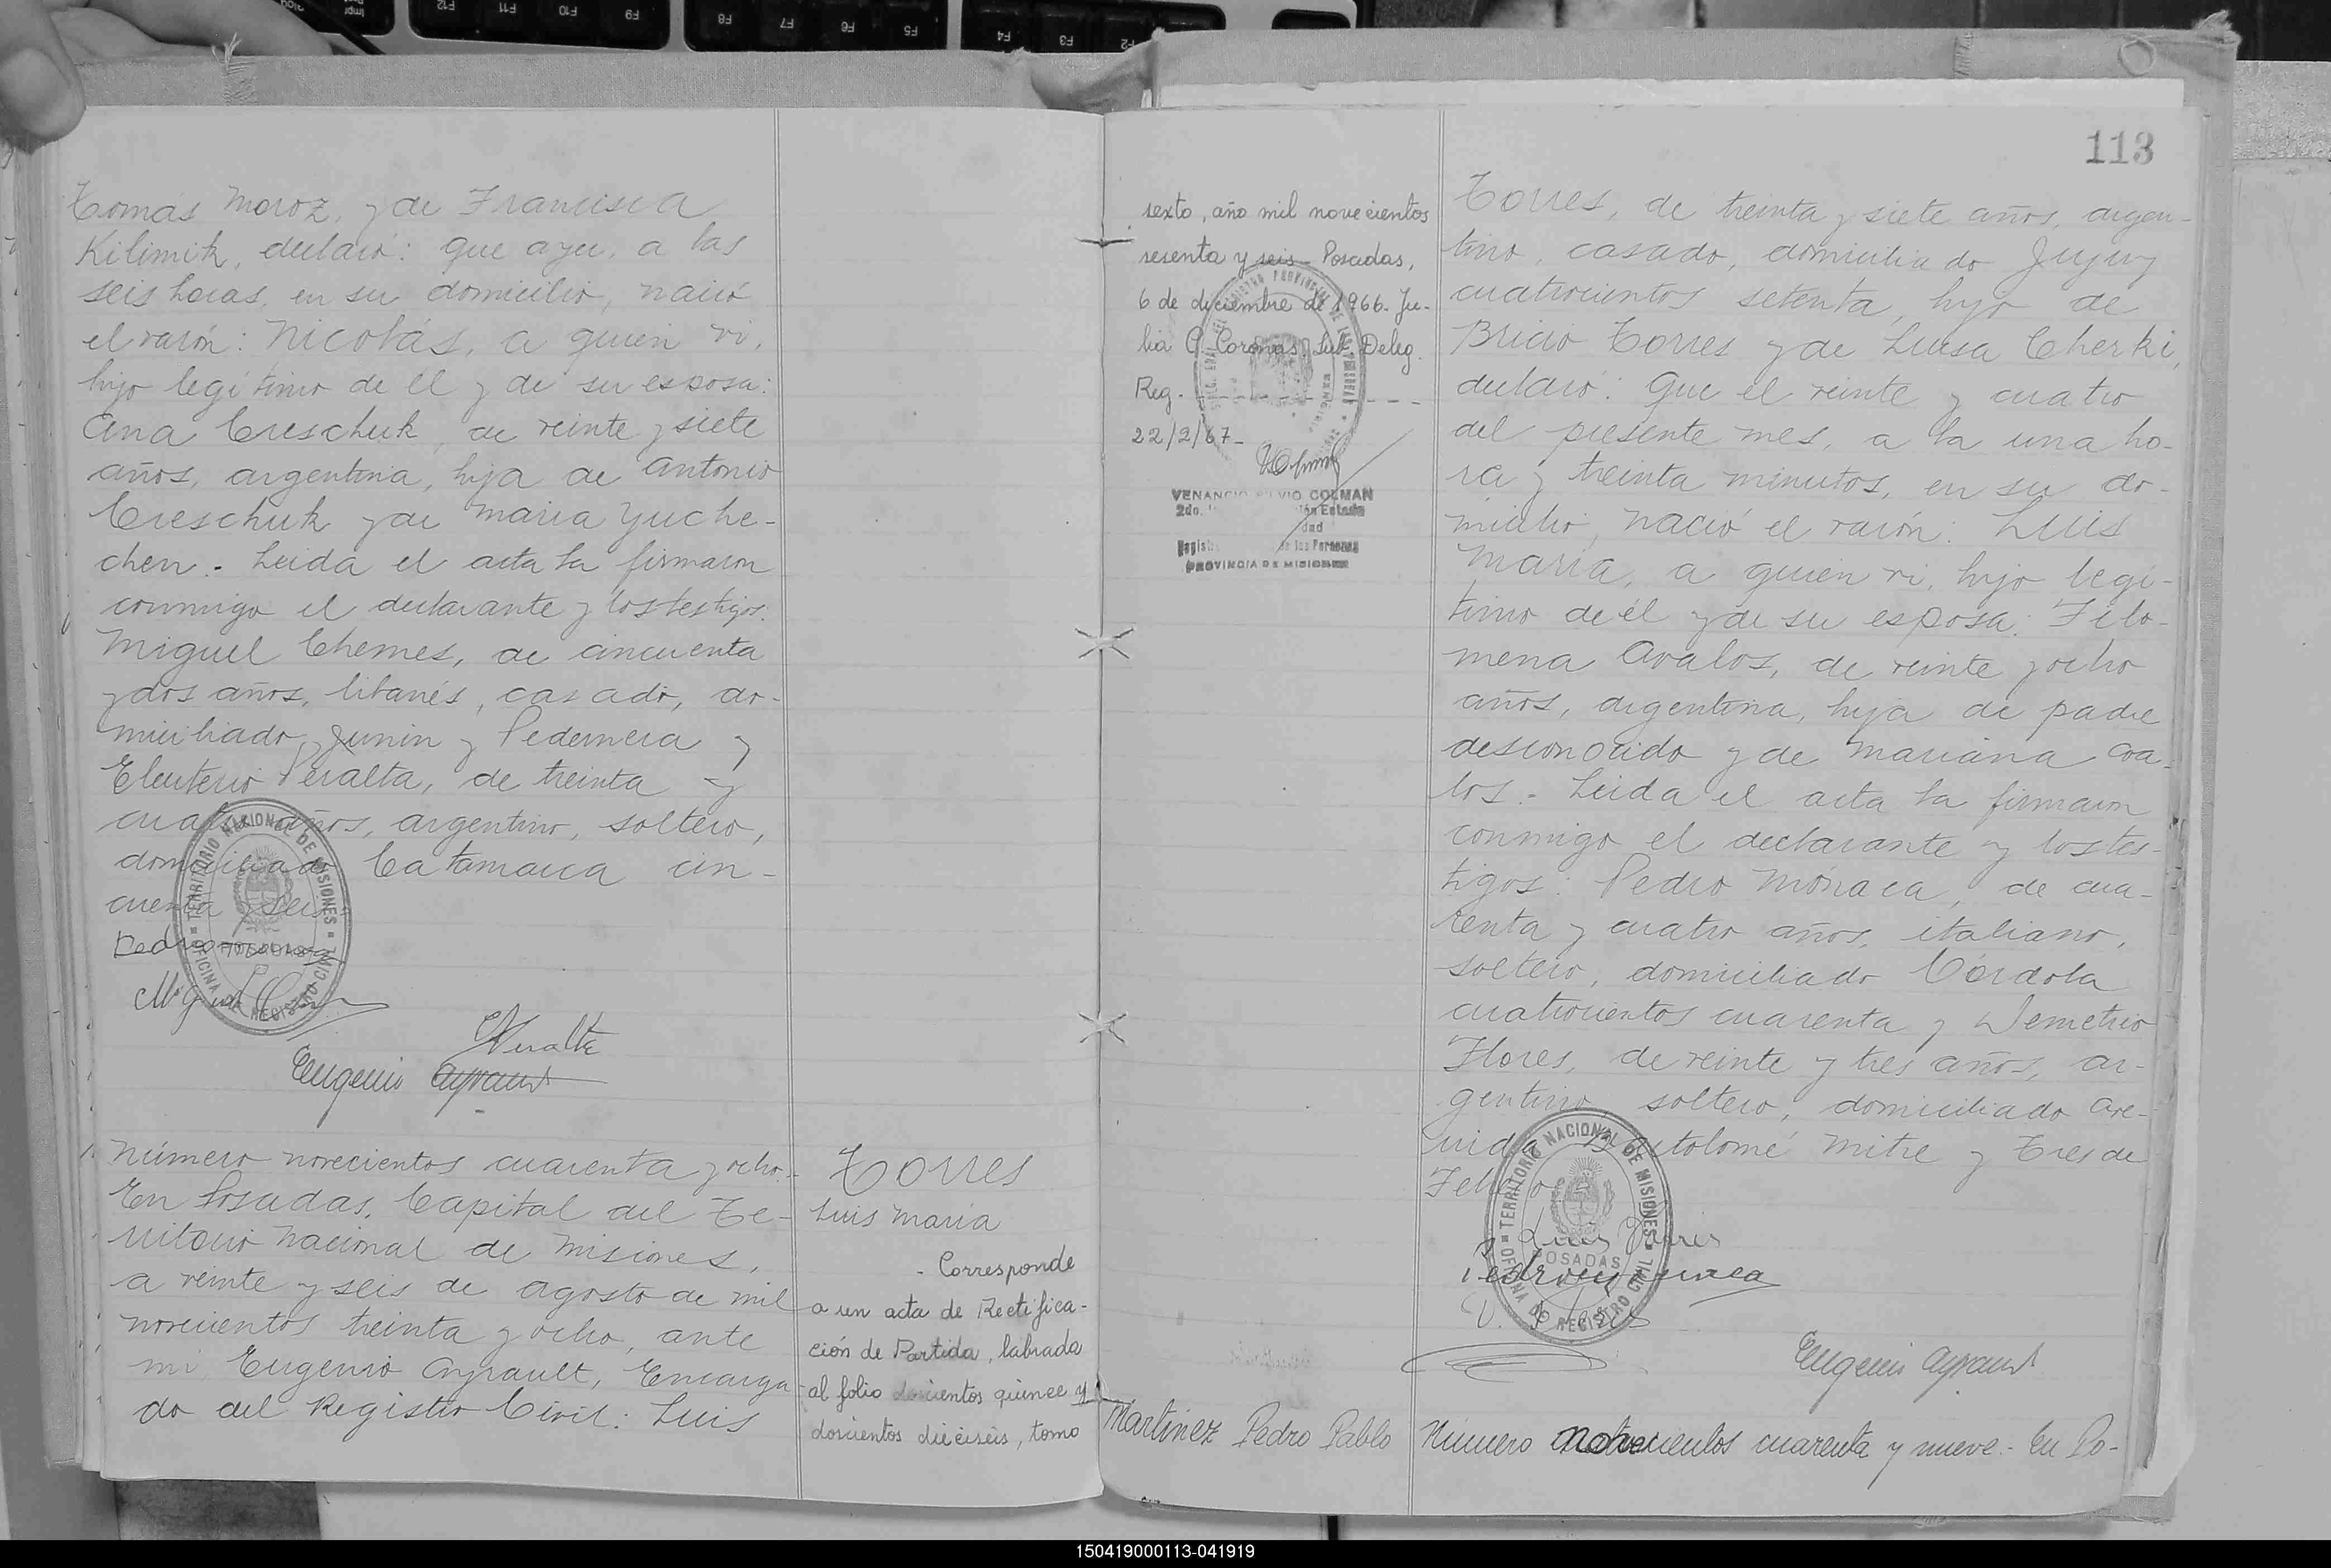 Tomás Moroz, y de Francisca
Kilimik, declaró: que ayer, a las
seis horas, en su domicilio, nació
el varón: Nicolás, a quien vi,
hijo legítimo de él y de su esposa:
Ana Creschuk, de veinte y siete
años, argentina, hija de Antonio
Creschuk y de María Yuche-
chen.- Leída el acta la firmaron
conmigo el declarante y los testigos:
Miguel Chemes, de cincuenta
y dos años, libanés, casado, do-
miciliado Junín y Pedernera y
Eleuterio Peralta, de treinta y
cuatro años, argentino, soltero,
domiciliado Catamarca cin-
cuenta y seis.
Pedro Moroz
Miguel
Peralta
Eugenio Ayrault
TERRITORIO NACIONAL DE MISIONES
OFICINA DE REGISTRO CIVIL
POSADAS
Número novecientos cuarenta y ocho.-
En Posadas, Capital del Te-
rritorio Nacional de Misiones,
a veinte y seis de agosto de mil
novecientos treinta y ocho, ante
mí, Eugenio Ayrault, Encarga-
do del Registro Civil: Luis
Torres
Luis María
- Corresponde
a un acta de Rectifica-
ción de Partida, labrada
al folio doscientos quince y
doscientos dieciseis, tomo
sexto, año mil novecientos
sesenta y seis - Posadas,
6 de diciembre de 1966. Ju-
lia C. Coronas. Sub Deleg.
Reg. - - - -
22/2/67-
VENANCIO SILVIO COLMAN
2do.
PROVINCIA DE MISIONES
Martínez Pedro Pablo
113
Torres, de treinta y siete años, argen-
tino, casado, domiciliado Jujuy
cuatrocientos setenta, hijo de
Bricio Torres y de Luisa Cherki,
declaró: Que el veinte y cuatro
del presente mes, a la una ho-
ra y treinta minutos, en su do-
micilio, nació el varón: Luis
María, a quien vi, hijo legí-
timo de él y de su esposa: Filo-
mena Avalos, de veinte y ocho
años, argentina, hija de padre
desconocido y de Mariana Ava-
los.- Leída el acta la firmaron
conmigo el declarante y los tes-
tigos: Pedro Mónaca, de cua-
renta y cuatro años, italiano,
soltero, domiciliado Córdoba
cuatrocientos cuarenta y Demetrio
Flores, de veinte y tres años, ar-
gentino, soltero, domiciliado Ave-
nida Bartolomé Mitre y Tres de
Febrero.
Luis Torres
Pedro Mónaca
Eugenio Ayrault
TERRITORIO NACIONAL DE MISIONES
OFICINA DE REGISTRO CIVIL
POSADAS
Número novecientos cuarenta y nueve.- En Po-
150419000113-041919